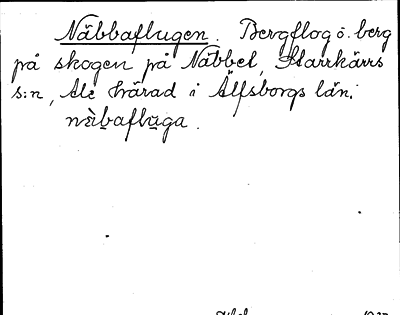 Näbbaflugen. Bergflog ö. berg
på skogen på Näbbet, Starrkärrs
s:n, Ale härad i Älfsborgs län.
nä̀baflu̲ga.